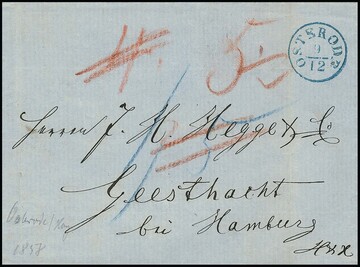 4. 5.
OSTERODE
9
12
Herren J. H. Hegge & Co
Geesthacht
bei Hamburg
1858